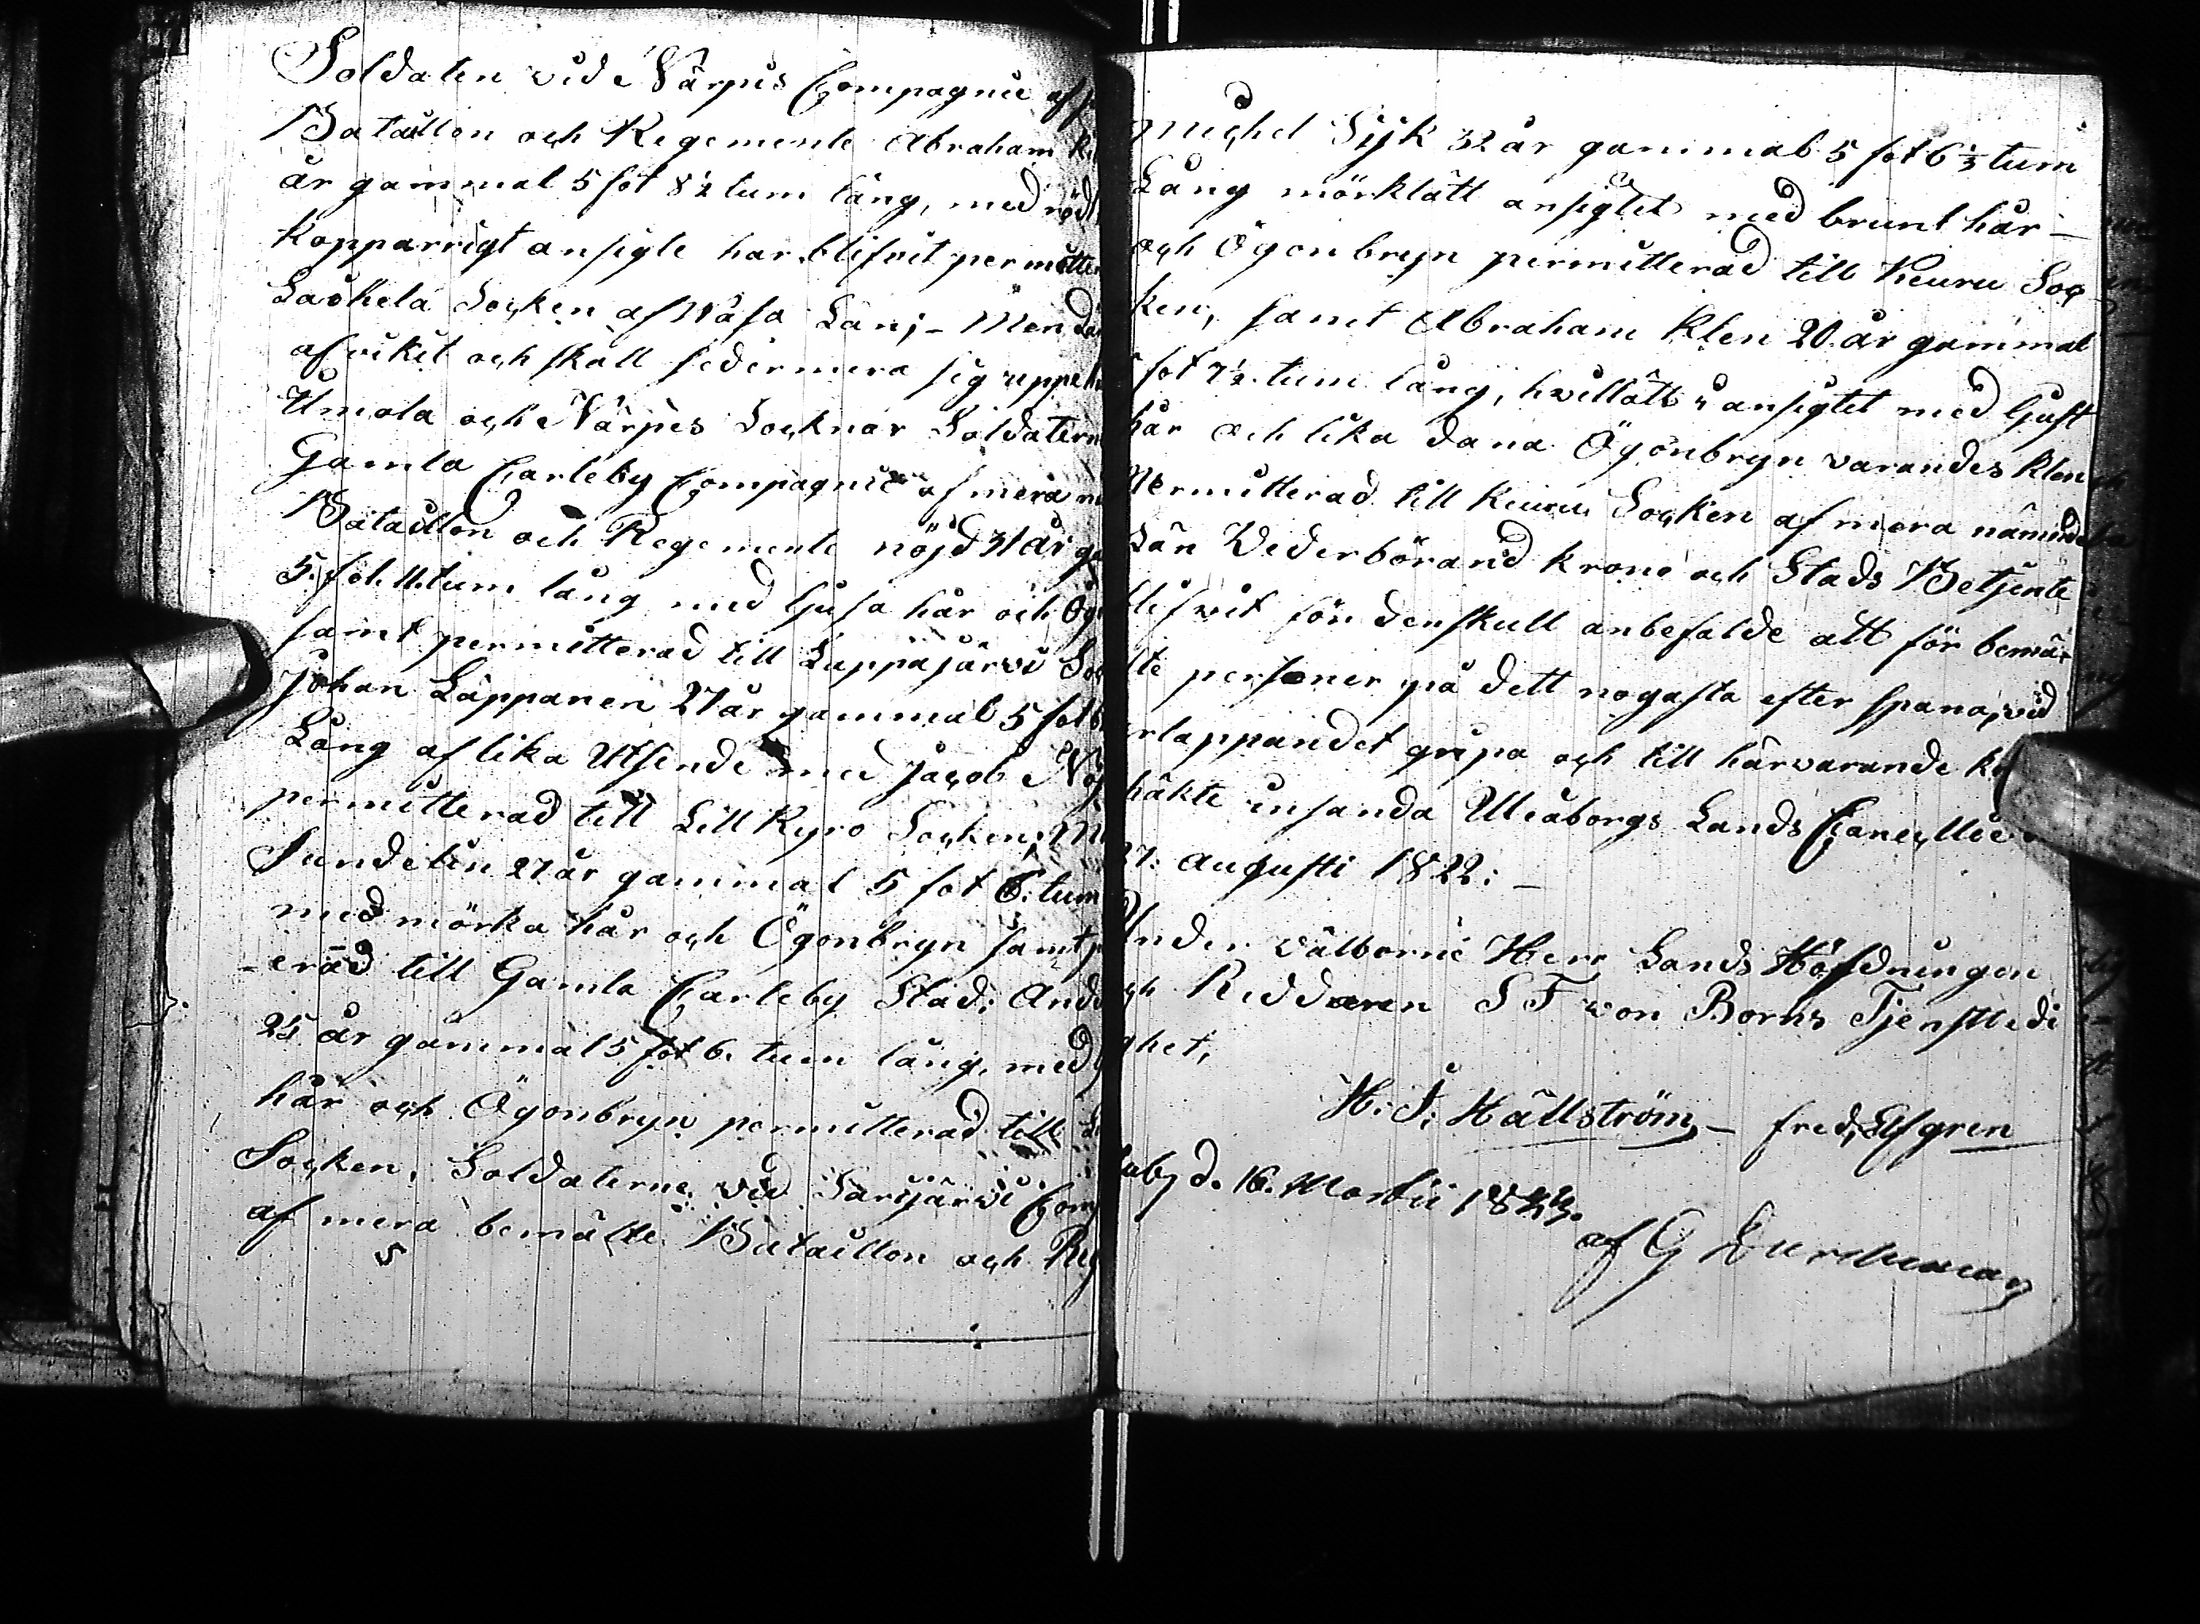 Soldaten vid Närpis Compagnie af
Bataillon och Regemente Abraham
år gammal 5 fot 8 1/2 tum lång, med rödt
Kopparrigt ansigte har blifvit permitter
Laihela Socken af Wasa Län; - Men där
afvikit och skall sedermera sig uppeh
Umola och Närpis Socknar Soldatern
Gamla Carleby Compagnie af mera n
Bataillon och Regemente Nöjd 31 år ga
5. fot. 11. tum lång med ljusa hår och Ög
samt permitterad till Lappajärvi Soc
Johan Lappanen 27 år gammal 5 fot 6
Lång af lika Utseende med Jacob Nöj
permitterad till Lill Kyro Socken; M
Sundelin 27 år gammal 5 fot 6. tum
med mörka hår och Ögonbryn samt p
-erad till Gamla Carleby Stad; And
25 år gammal 5 fot 6. tum lång, med
hår och Ögonbryn permitterad till
Socken, Soldaterne vid Sarijärvi Com
af mera bemälte Bataillon och Reg
michel Sijk 32 år gammal 5 fot 6 1/3 tum
Lång mörklätt ansigtet med brunt hår -
och Ögonbryn permitterad till Keuru Soc
ken, samt Abraham Klen 20 år gammal
fot 7 1/2 tum lång, hvitlätt i ansigtet med ljust
hår och lika dana Ögonbryn varandes Klen
Permitterad till Keuru Socken af mera nämnde
Län Wederbörand krono och Stads Betjente
blifvit för denskull anbefalde att för bemär
lte personer på dett nogasta efter spana, vid
rtappandet gripa och till härvarande kr
häkte insända Uleåborgs Lands Cancellie
27. Augusti 1822: -
Under välborne Herr Lands Höfdningen
ch Riddaren S F von Borns Tjenstledi
ghet,
H: J: Hällström - Fred, Elfgren
d. 16. Martii
af G